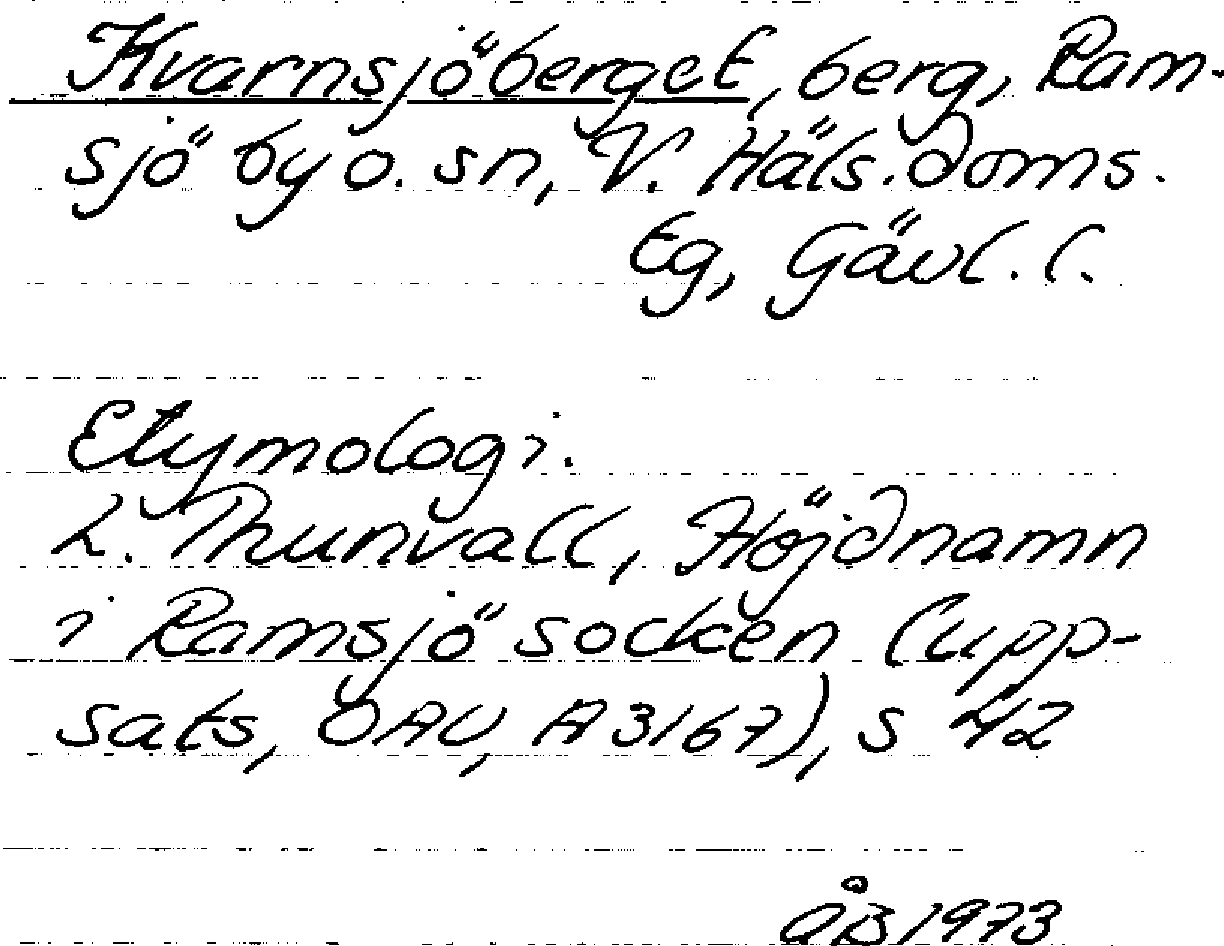 Kvarnsjöberget, berg, Ram-
sjö by o. sn, V. Häls. doms.
Eg, Gävl. l.
Etymologi.
L. Thunvall, Höjdnamn
i Ramsjö socken (upp-
sats, OAU, A 3167), s 42
ÅB 1973